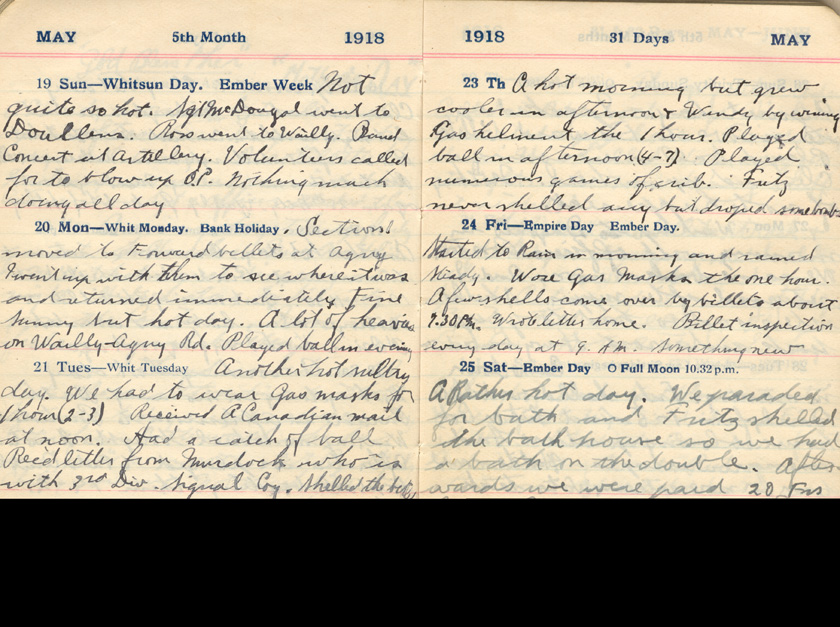 MAY 5th Month 1918
19 Sun—Whitsun Day. Ember Week Not
quite so hot. Sgt McDougal went to
Doullens. Ross went to Wailly. Band
Concert at Artillery. Volunteers called
for to blow up O.P. Nothing much
doing all day
20 Mon—Whit Monday. Bank Holiday. Section
moved to Forward billets at Agny
I went up with them to see where it was
and returned immediately. Fine
sunny but hot day. A lot of heavies
on Wailly-Agny Rd. Played ball in evening
21 Tues—Whit Tuesday Another hot sultry
day. We had to wear Gas masks for
1 hour (2-3) Received A Canadian mail
at noon. Had a catch of ball
Rec'd letter from Murdock who is
with 3rd Div. Signal Coy. Shelled the
1918 31 Days MAY
23 Th A hot morning but grew
cooler in afternoon & Windy by evening
Gas helment the 1 hour. Played
ball in afternoon (4-7) Played
numerous games of crib. Fritz
never shelled any but droped some bombs
24 Fri—Empire Day Ember Day.
Started to Rain in morning and rained
steady. Wore Gas Masks the one hour.
A few shells come over by billets about
7.30 P.M. Wrote letter home. Billet inspection
every day at 9. A.M. Something new
25 Sat—Ember Day O Full Moon 10.32 p.m.
A Rather hot day. We paraded
for bath and Fritz shelled
the bath house so we had
a bath on the double. After-
wards we were paid 20 Frs